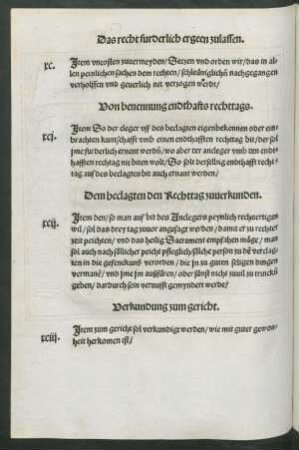 Das recht furderlich ergeen zulassen.
xc. Item vncosten zuuermeyden/ Setzen vnd orden wir/ das in al
len peinlichen sachen dem rechten/ schleüniglichñ nachgegangen
verholffen vnd geuerlich nit verzogen werdt/
Von benennung endthaffts rechttags.
xcj. Item So der cleger vff des beclagten eigenbekennen oder ein
brachten kuntschafft vmb einen endthafften rechttag bit/ der sol
jme furderlich ernent werdñ/ wo aber der ancleger vmb den endt
hafften rechttag nit biten wolt/ So solt derselbig endthafft recht
tag auf des beclagten bit auch ernant werden/
Dem beclagten den Rechttag zuuerkunden.
xcij. Item den/ so man auf bit des Anclegers peynlich rechtuertigen
wil/ sol das drey tag zuuor angesagt werden/ damit er zu rechter
zeit peichten/ vnd das heilig Sacrament empfahen möge/ man
sol auch nach söllicher peicht pfleglich sölche person zu dẽ verclag
ten in die gefencknuß verordent/ die jn zu guten seligen dingen
vermanẽ/ vnd jme jm außfürn/ oder sünst nicht zuuil zu trincku
geben/ dardurch sein vernufft gemyndert werde/
Verkundung zum gericht.
xciij. Item zum gericht sol verkundigt werden/ wie mit guter gewon
heit herkomen ist/